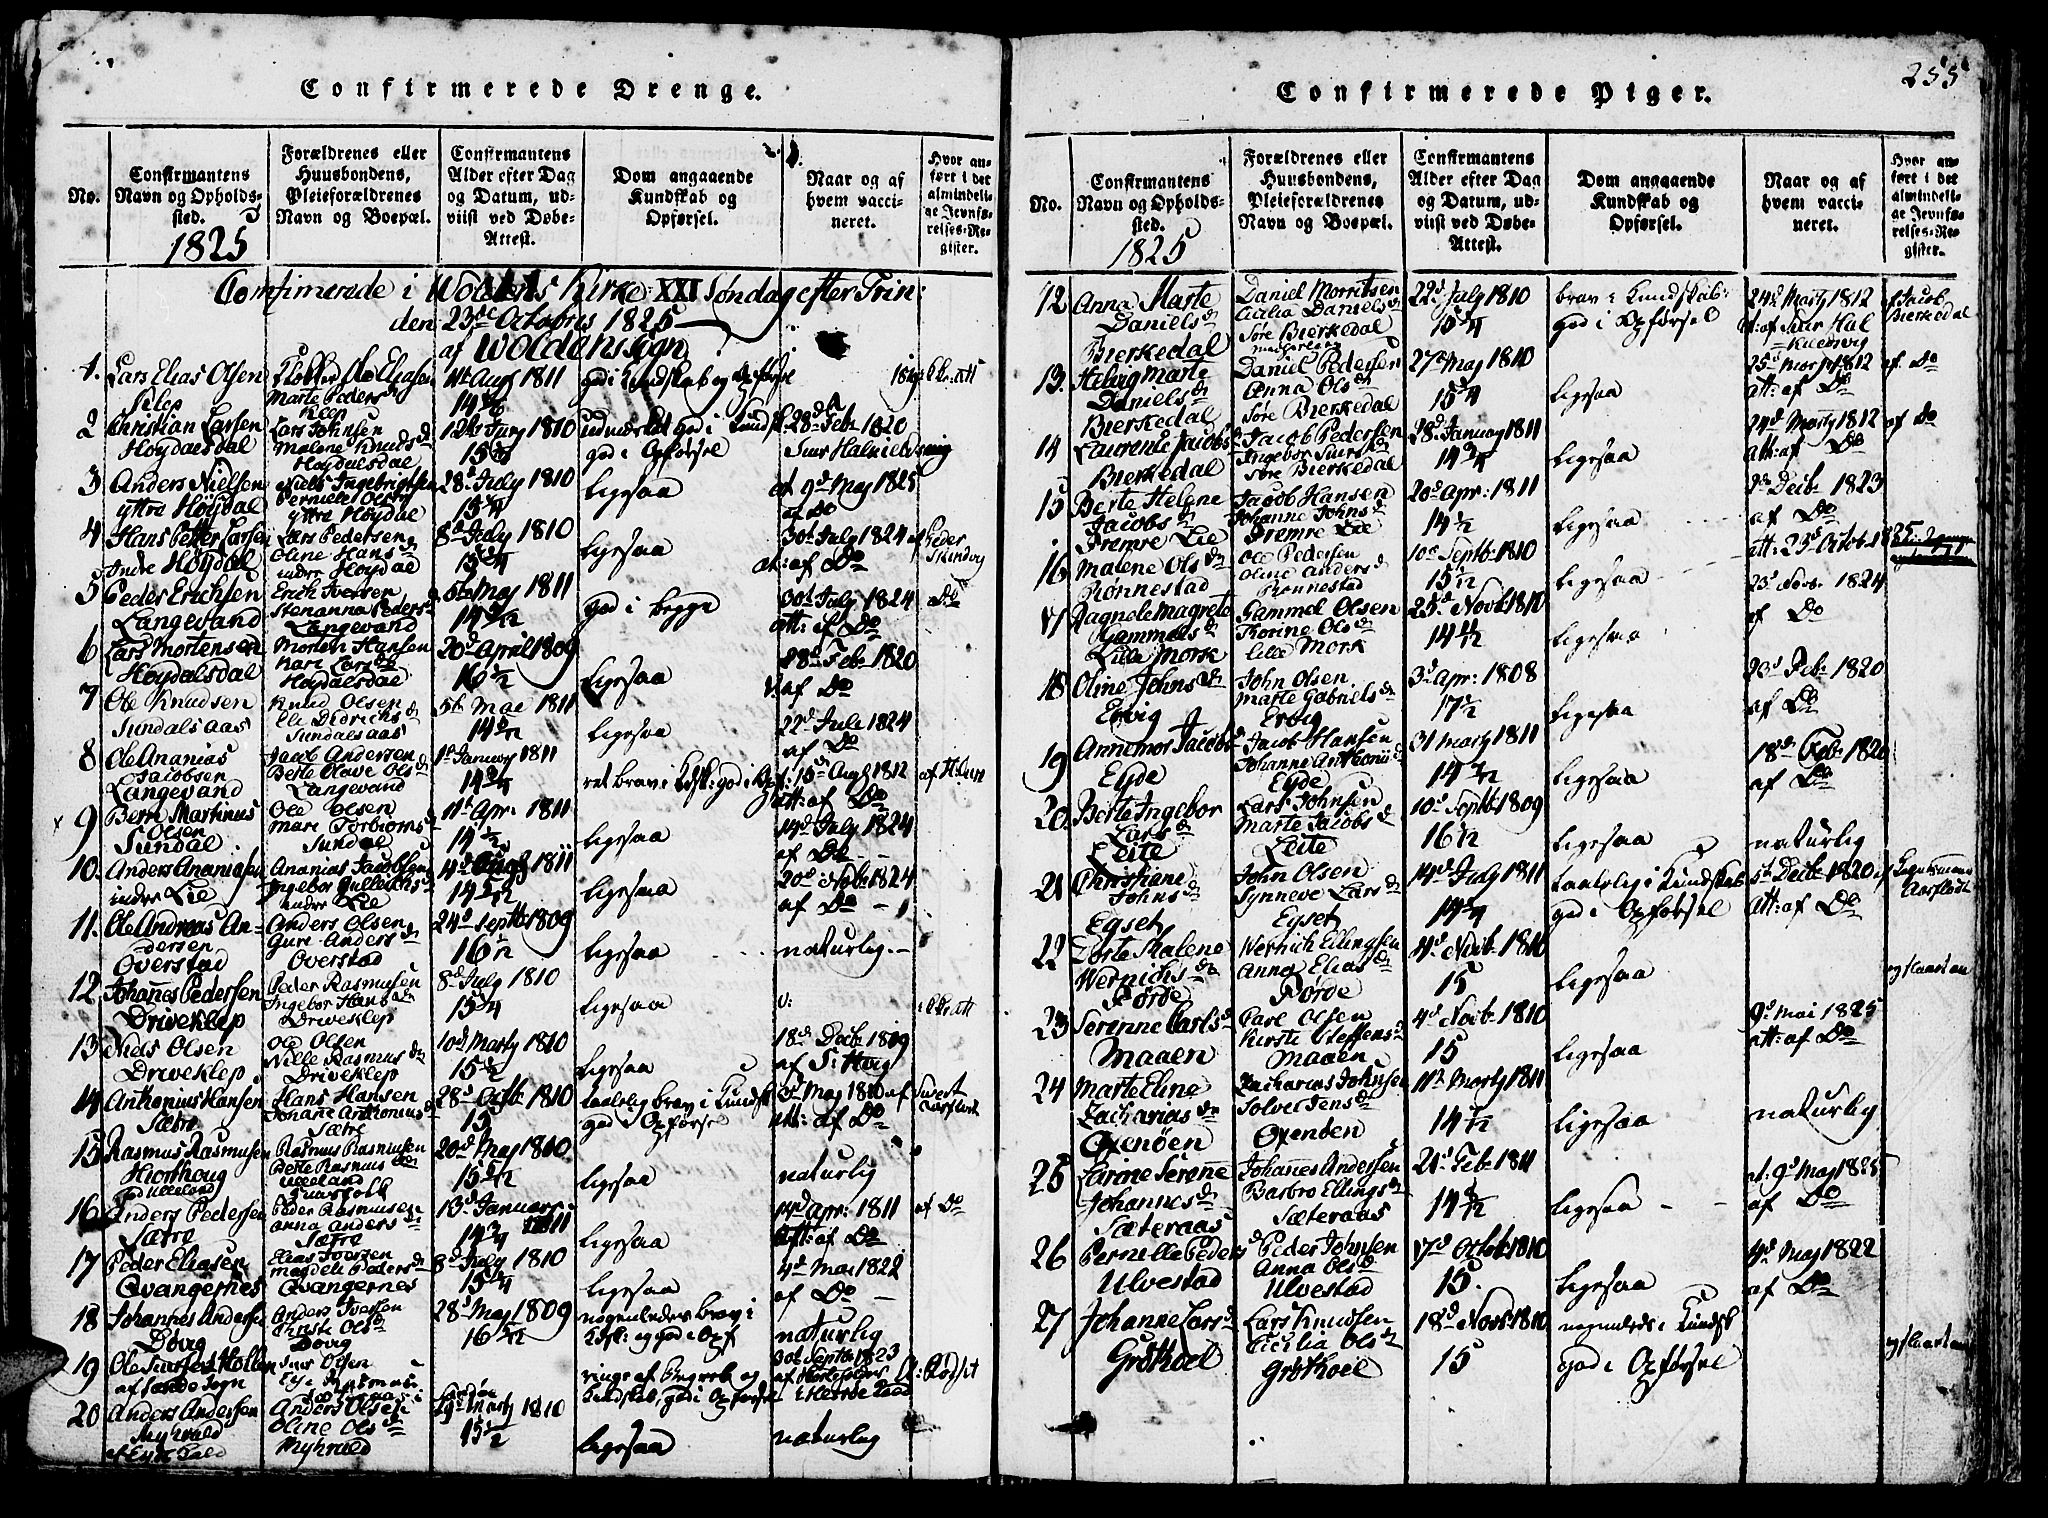 255
Confirmerede Drenge.
No.
Confirmantens Navn og Opholdssted.
1825
Forældrenes eller Huusbondens, Pleieforældrenes Navn og Boepæl.
Confirmantens Alder efter Dag og Datum, udviist ved Døbe-Attest.
Dom angaaende Kundskab og Opførsel.
Naar og af hvem vaccineret.
Hvor anført i det almindelige Jevnførelses-Register.
Confirmerede i Woldens Kirke XXI Søndag efter Trin:
den 23de Octobris 1825
af Woldens Sogn
1. Lars Elias Olsen Klep
Klokker Ole Eliasen Marte Peders dn Klep
11t Augt 1811 14
god i Kundskab og Opførsel
2 Christian Larsen Høydalsdal
Lars Johnsen Malene Knuds dn Høydalsdal
12t Juny 1810 15
udmærket god i Kundsk. god i Opførsel
28d Feb: 1820
3 Anders Nielsen yttre Høydal
Niels Ingebrigtsen Pernielle Ols dn yttre Høydal
28d July 1810 15 1/4
ligesaa
at 9d May 1825 af Do
4 Hans Petter Larsen Indre Høydal
Lars Pedersen Oline Hans dn indre Høydal
8d July 1810 15 1/4
ligesaa
30t July 1824 at: af Do
5 Peder Erichsen Langevand
Erich Iversen Stenanna Peders dn Langevand
6t May 1811 14
god i begge
30t July 1824 att: af Do
Do
6 Lars Mortensen Høydalsdal
Morten Hansen Kari Lars dn Høydalsdal
20d April 1809 16 1/2
ligesaa
28d Feb: 1820 af Do
7 Ole Knudsen Sundalsaas
Knud Olsen Eli Didrichs dn Sundalsaas
5t Mai 1811 14
ligesaa
22d Juli 1824 af Do
8 Ole Ananias Jacobsen Langevand
Jacob Andersen Berte Olave Ols dn Langevand
1t January 1811 14 3/4
ret brav i Kdsk: god i Opf:
15d Augt 1812 att: af Do
9 Bernt Martinus Olsen Sundal
Ole Olsen Mari Torbiørns dn Sundal
11t Apr: 1811 14 1/2
ligesaa
14d July 1824 af Do
10. Anders Ananiasen indre Lie
Ananias Jacobsen Ingebor Gullachs dn indre Lie
4d Augt 1811 14
ligesaa
20d Nob: 1824 af Do
11. Ole Andreas Andersen Overstad
Anders Olsen Guri Anders dn Overstad
24d Septb: 1809 16
ligesaa
naturlig
12 Johannes Pedersen Driveklep
Peder Rasmusen Ingebor Hans dn Driveklep
8d July 1810 15 1/4
ligesaa
13 Niels Olsen Driveklep
Ole Olsen Nille Rasmus dn Driveklep
10d Marty 1810 15
ligesaa
18d Decb: 1809 af S: Houg
14 Anthonius Hansen Sætre
Hans Hansen Johane Anthonius dn Sætre
28d Octb: 1810 15
taalelig brav i Kundsk god i Opførsel
3d May 1810 att: af Do
15 Rasmus Rasmusen Hiorthoug
Rasmus Rasmusen Berte Rasmus dn Ulleland
20d May 1810 15
ligesaa
naturlig
16 Anders Pedersen Sætre
Peder Rasmusen Anna Anders dn Sætre
13d January 1811 14 3/4
ligesaa
14d Apr: 1811 att: af Do
af Do
17 Peder Eliasen Qvangernes
Elias Iversen Magdeli Peders dn Qvangernes
8d July 1810 15 1/4
ligesaa
4d Mai 1822 af Do
18 Johannes Andersen Døvig
Anders Iversen Christi Ols dn Døvig
28d May 1809 16
nogenledes brav i Kdsk: og god i Opf
naturlig
19 Ole
Olsen
20 Anders Andersen Myhrvold
Anders Olsen Oline Ols dn Myhrvold
29d Marty 1810 15 1/2
ligesaa
naturlig
Confirmerede Piger.
No.
Confirmantens Navn og Opholdssted.
1825
Forældrenes eller Huusbondens, Pleieforældrenes Navn og Boepæl.
Confirmantens Alder efter Dag og Datum, udviist ved Døbe-Attest.
Dom angaaende Kundskab og Opførsel.
Naar og af hvem vaccineret.
Hvor anført i det almindelige Jevnførelses-Register.
12. Anna Marte Daniels dn Bierkedal
Daniel Morritsen Cicilia Daniels dn Søre Bierkedal
22d July 1810 15 1/4
brav i Kundskab: god i Opførsel
24d Marty 1812
af Jacob Bierkedal
13. Helvig Marte Daniels dn Bierkedal
Daniel Pedersen Anna Ols dn Søre Bierkedal
27d May 1810 15
ligesaa
25d Marty 1812 att: af Do
af Do
14 Laurense Jacobs dn Bierkedal
Jacob Pedersen Ingebor Siurs dn Søre Bierkedal
28d January 1811 14 3/4
ligesaa
24d Marty 1812 att: af Do
af Do
15 Berte Helene Jacobs dn Fremre Lie
Jacob Hansen Johanne Johns dn Fremre Lie
20d Apr: 1811 14 1/2
ligesaa
Decb: 1823 af Do
16 Malene Ols dn Rønnestad
Ole Pedersen Oline Anders dn Rønnestad
10d Septb: 1810 15
ligesaa
att: 23d Octob: 1825
17 Ragnele Magrete Gammels dn Lille Mork
Gammel Olsen Thorine Ols dn Lille Mork
25d Novb: 1810 14
ligesaa
23d Novb: 1824 af Do
18 Oline Johns dn Ervig
John Olsen Marte Gabriels dn Ervig
3d Apr: 1808 17 1/2
ligesaa
23d Feb: 1820 af Do
19 Annemor Jacobs dn Eyde
Jacob Hansen Johanne Anthonii dn Eyde
31 Marty 1811 14
ligesaa
18d Feb: 1820 af Do
20. Berte Ingebor Lars dn Leite
Lars Johnsen Marte Jacobs dn Leite
10d Septb: 1809 16
ligesaa
naturlig
21 Christiane Johns dn Egset
John Olsen Synneve Lars dn Egset
14d July 1811 14 1/4
taalelig i Kundskab god i Opførsel
5t Decb: 1820 att: af Do
22 Dorte Malene Wernichs dn Førde
Wernich Ellingsen Anna Elias dn Førde
4d Novb: 1810 15
ligesaa
23 Serinne Carls dn Maaen
Carl Olsen Kirsti Steffens dn Maaen
4d Novb: 1810 15
ligesaa
9d Mai 1825 att: af Do
24 Marte Eline Zacharias dn Oxenøen
Zacharias Johnsen Solvei Jens dn Oxenøen
11t Marty 1811 14
ligesaa
naturlig
25 Karine Serinne Johannes dn Sæteraas
Johannes Andersen Barbro Ellings dn Sæteraas
21d Feb: 1811 14
ligesaa
at: 9d May 1825 af Do
26 Pernille Peders dn Ulvestad
Peder Johnsen Anna Ols dn Ulvestad
17d Octob: 1810 15.
ligesaa
4d May 1822 af Do
27 Johanne Lars dn Grøthoel
Lars Knudsen Cicilia Ols dn Grøthoel
18d Novb: 1810 15
nogenleds i Kundsk god i Opførsel